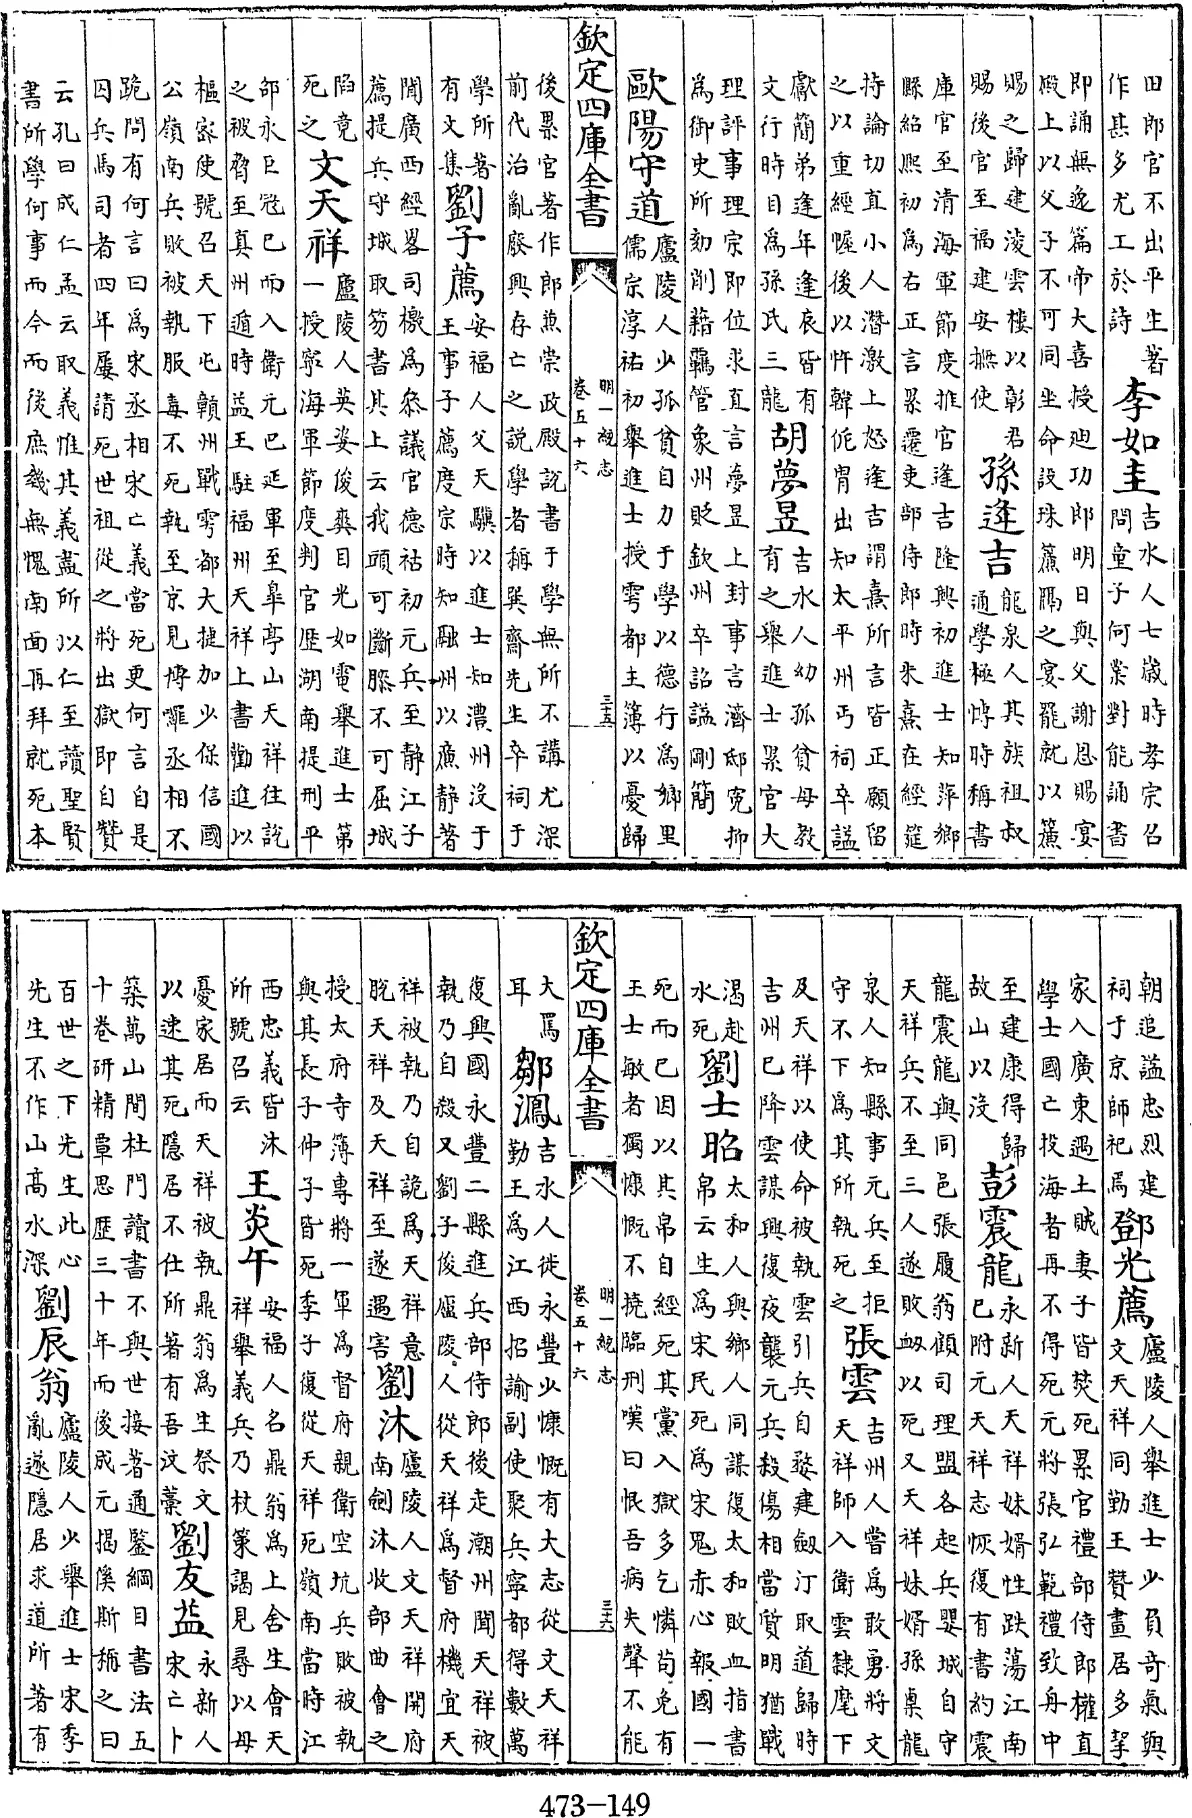 田郎官不出平生著
作甚多尤工於詩
李如圭
吉水人七歲時孝宗召
問童子何業對能誦書
即誦無逸篇帝大喜授廸功郎明日與父謝恩賜宴
殿上以父子不可同坐命設珠簾隔之宴罷就以簾
賜之歸建淩雲樓以彰君
賜後官至福建安撫使
孫逢吉
龍泉人其族祖叔
通學極博時稱書
庫官至清海軍節度推官逢吉隆興初進士知萍鄉
縣紹熙初為右正言累遷吏部侍郎時朱熹在經筵
持論切直小人潛激上怒逢吉謂熹所言皆正願留
之以重經幄後以忤韓侂胄出知太平州丐祠卒諡
獻簡弟逢年逢辰皆有
文行時目為孫氏三龍
胡夢昱
吉水人幼孤貧母教
有之舉進士累官大
理評事理宗即位求直言夢昱上封事言濟邸寃抑
為御史所劾削籍羈管象州貶欽州卒詔諡剛簡
歐陽守道
廬陵人少孤貧自力于學以德行為鄉里
儒宗淳祐初舉進士授雩都主簿以憂歸
欽定四庫全書
明一統志
卷五十六
三十五
後累官著作郎兼崇政殿說書于學無所不講尤深
前代治亂廢興存亡之說學者稱巽齋先生卒祠于
學所著
有文集
劉子薦
安福人父天驥以進士知澧州沒于
王事子薦度宗時知融州以廉靜著
聞廣西經畧司檄為叅議官德祐初元兵至靜江子
薦提兵守城取笏書其上云我頭可斷膝不可屈城
陷竟
死之
文天祥
廬陵人英姿俊爽目光如電舉進士第
一授寧海軍節度判官歷湖南提刑平
邵永巨冦已而入衛元已延軍至臯亭山天祥往說
之被脅至真州遁時益王駐福州天祥上書勸進以
樞宻使號召天下屯贑州戰雩都大捷加少保信國
公嶺南兵敗被執服毒不死執至京見博囉丞相不
跪問有何言曰為宋丞相宋亡義當死更何言自是
囚兵馬司者四年屢請死世祖從之將出獄即自贊
云孔曰成仁孟云取義惟其義盡所以仁至讀聖賢
書所學何事而今而後庶幾無愧南面再拜就死本
朝追謚忠烈建
祠于京師祀焉
鄧光薦
廬陵人舉進士少負奇氣與
文天祥同勤王贊畫居多挈
家入廣東遇土賊妻子皆焚死累官禮部侍郎權直
學士國亡投海者再不得死元將張弘範禮致舟中
至建康得歸
故山以沒
彭震龍
永新人天祥妹婿性跌蕩江南
已附元天祥志恢復有書約震
龍震龍與同邑張履翁顧司理盟各起兵嬰城自守
天祥兵不至三人遂敗衂以死又天祥妹婿孫㮚龍
泉人知縣事元兵至拒
守不下為其所執死之
張雲
吉州人嘗為敢勇將文
天祥師入衛雲隸麾下
及天祥以使命被執雲引兵自婺建劔汀取道歸時
吉州已降雲謀興復夜襲元兵殺傷相當質明猶戰
渴赴
水死
劉士昭
太和人與鄉人同謀復太和敗血指書
帛云生為宋民死為宋鬼赤心報國一
死而已因以其帛自經死其黨入獄多乞憐茍免有
王士敏者獨慷慨不撓臨刑嘆曰恨吾病失聲不能
欽定四庫全書
明一統志
卷五十六
三十六
大罵
耳
鄒㵯
吉水人徙永豐少慷慨有大志從文天祥
勤王為江西招諭副使聚兵寧都得數萬
復興國永豐二縣進兵部侍郎後走潮州聞天祥被
執乃自殺又劉子俊廬陵人從天祥為督府機宜天
祥被執乃自詭為天祥意
脫天祥及天祥至遂遇害
劉沐
廬陵人文天祥開府
南劍沐收部曲會之
授太府寺簿專將一軍為督府親衛空坑兵敗被執
與其長子仲子皆死季子復從天祥死嶺南當時江
西忠義皆沐
所號召云
王炎午
安福人名鼎翁為上舍生會天
祥舉義兵乃杖策謁見尋以母
憂家居而天祥被執鼎翁為生祭文
以速其死隱居不仕所著有吾汶藁
劉友益
永新人
宋亡卜
築萬山間杜門讀書不與世接著通鑒綱目書法五
十卷研精覃思歷三十年而後成元揭傒斯稱之曰
百世之下先生此心
先生不作山高水深
劉辰翁
廬陵人少舉進士宋季
亂遂隱居求道所著有
473-149